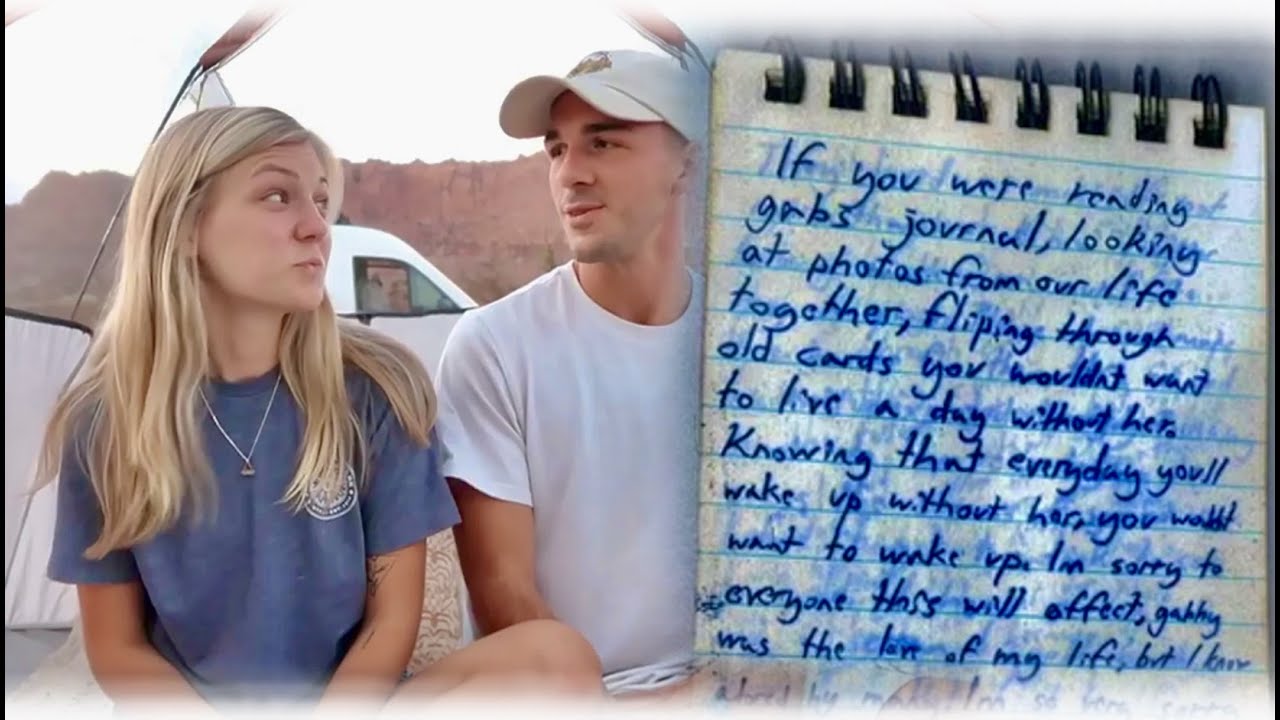 If you were reading
gabs journal, looking
at photos from our life
together, fliping through
old cards you wouldnt want
to live a day without her.
Knowing that everyday you'll
wake up without her, you wouldnt
want to wake up. Im sorry to
everyone this will affect, gabby
was the love of my life, but I know
adored by many. Im so very sorry